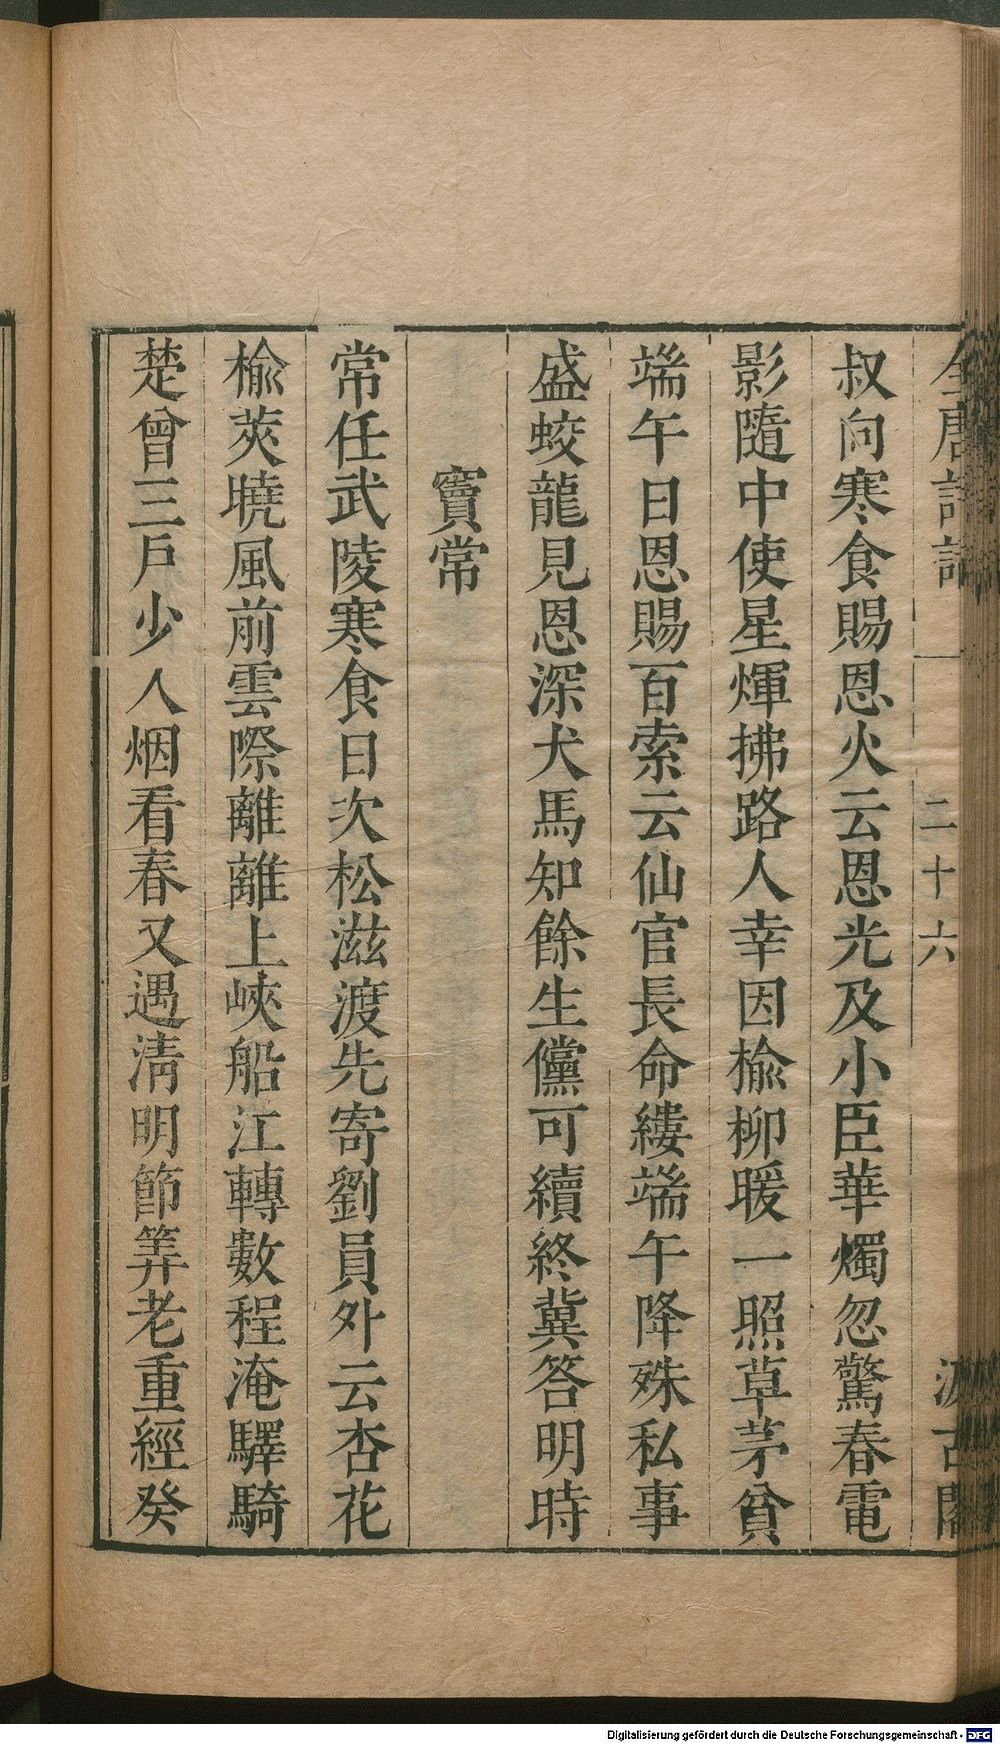 全唐詩話
二十六
汲古閣
叔向寒食賜恩火云恩光及小臣華燭忽驚春電
影隨中使星輝拂路人幸因榆柳暖一照草茅貧
端午日恩賜百索云仙官長命縷端午降殊私事
盛蛟龍見恩深犬馬知餘生儻可續終冀答明時
竇常
常任武陵寒食日次松滋渡先寄劉員外云杏花
榆莢曉風前雲際離離上峽船江轉數程淹驛騎
楚曾三戶少人烟看春又遇淸明節筭老重經癸
Digitalisierung gefördert durch die Deutsche Forschungsgemeinschaft - DFG